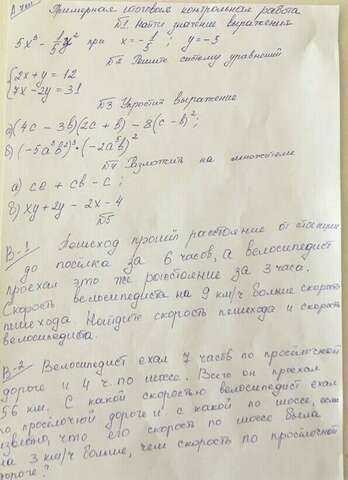 А част
Примерная итоговая контрольная работа
Б1 Найти значение выражения
5x³ - 1/5 y² при x = -1/5 ; y = -5
Б2 Решите систему уравнений
{2x + y = 12
7x - 2y = 31
Б3 Упростит выражение
а) (4c - 3b)(2c + b) - 8(c - b)²;
б) (-5a³b²)³ · (-2a³b)²
Б4 Разложить на множители
а) ca + cb - c ;
б) xy + 2y - 2x - 4
Б5
В-1 Пешеход прошёл расстояние от станции
до посёлка за 6 часов, а велосипедист
проехал это же расстояние за 3 часа.
Скорость велосипедиста на 9 км/ч больше скорость
пешехода. Найдите скорость пешехода и скорость
велосипедиста.
В-2 Велосипедист ехал 7 часть по просёлочной
дороге и 4 ч по шоссе. Всего он проехал
56 км. С какой скоростью велосипедист ехал
по просёлочной дороге и с какой по шоссе, если
известно, что его скорость по шоссе была
на 3 км/ч больше, чем скорость по просёлочной
дороге?